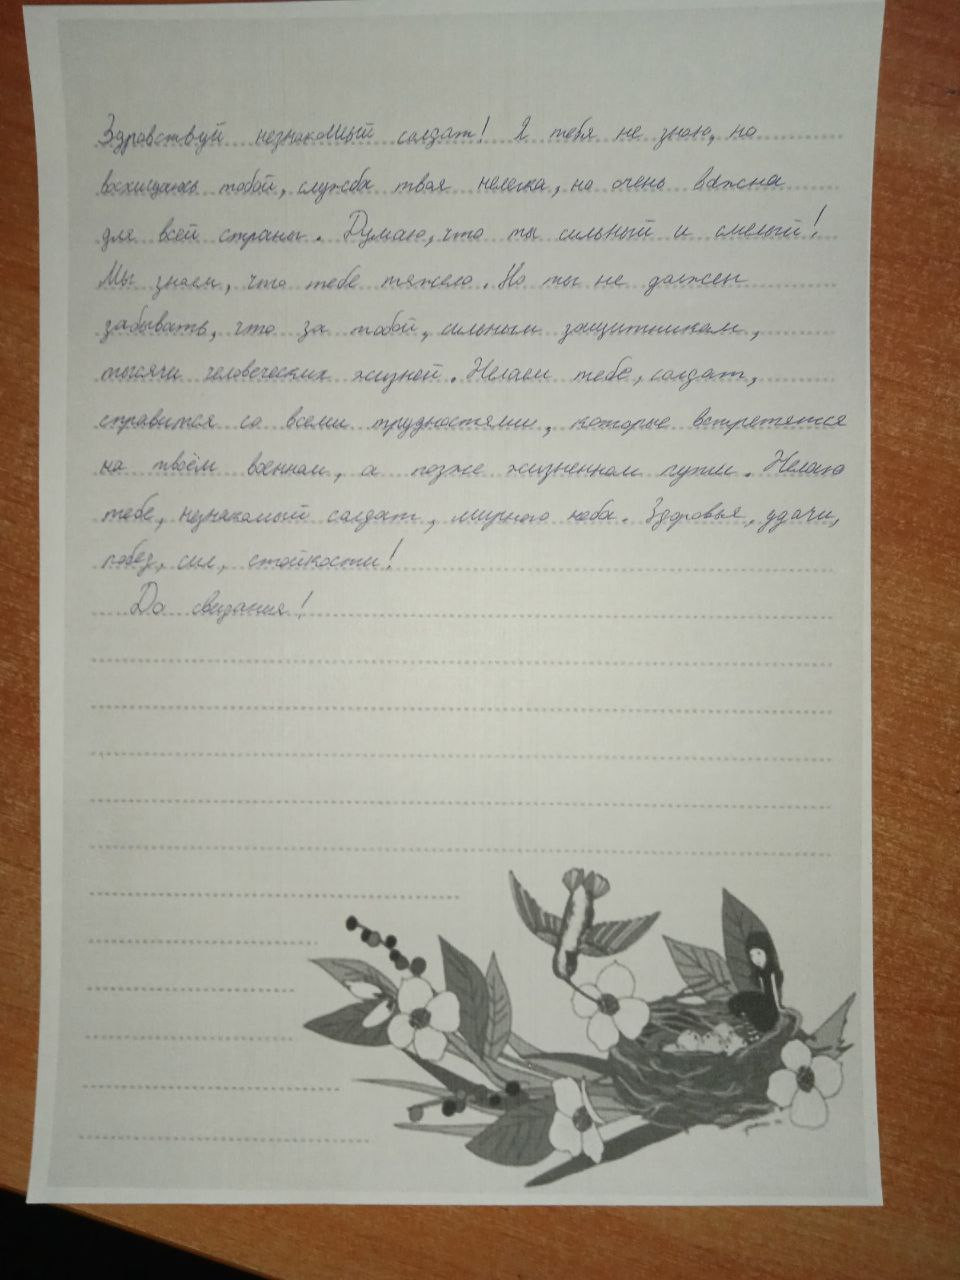 Здравствуй незнакомый солдат! Я тебя не знаю, но
восхищаюсь тобой, служба твоя нелегка, но очень важна
для всей страны. Думаю, что ты сильный и смелый!
Мы знаем, что тебе тяжело. Но ты не должен
забывать, что за тобой, сильным защитником,
тысячи человеческих жизней. Желаем тебе, солдат,
справится со всеми трудностями, которые встретятся
на твоём военном, а позже жизненном пути. Желаю
тебе, незнакомый солдат, мирного неба. Здоровья, удачи,
побед, сил, стойкости!
До свидания!